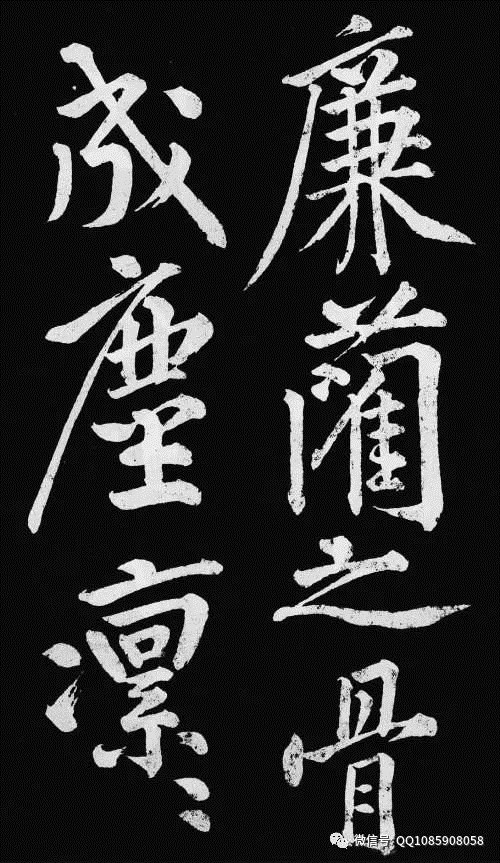 廉藺之骨
成塵凜〻
微信号: QQ1085908058